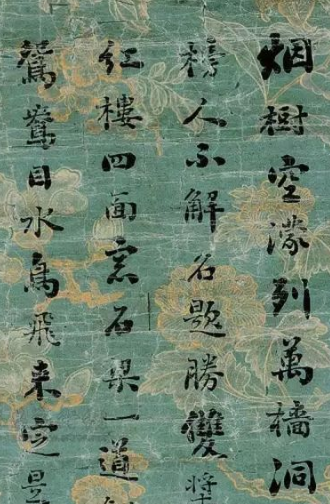 烟樹空濛列萬洞
榜人不解名題勝雙將
紅樓四面窓石梁一道
鴛鴦目水鳥飛來定